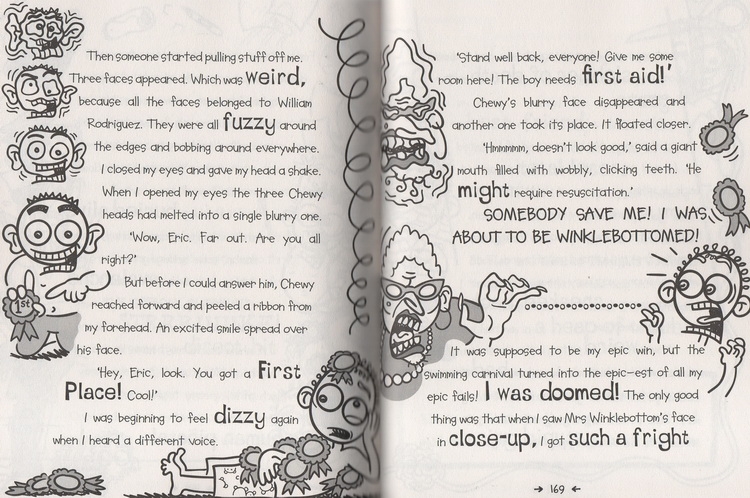 Then someone started pulling stuff off me.
Three faces appeared. Which was weird,
because all the faces belonged to William
Rodriguez. They were all fuzzy around
the edges and bobbing around everywhere.
I closed my eyes and gave my head a shake.
When I opened my eyes the three Chewy
heads had melted into a single blurry one.
'Wow, Eric. Far out. Are you all
right?'
But before I could answer him, Chewy
reached forward and peeled a ribbon from
my forehead. An excited smile spread over
his face.
'Hey, Eric, look. You got a First
Place! Cool!'
I was beginning to feel dizzy again
when I heard a different voice.
1st
'Stand well back, everyone! Give me some
room here! The boy needs first aid!'
Chewy's blurry face disappeared and
another one took its place. It floated closer.
'Hmmmm, doesn't look good,' said a giant
mouth filled with wobbly, clicking teeth. 'He
might require resuscitation.'
SOMEBODY SAVE ME! I WAS
ABOUT TO BE WINKLEBOTTOMED!
It was supposed to be my epic win, but the
swimming carnival turned into the epic-est of all my
epic fails! I was doomed! The only good
thing was that when I saw Mrs Winklebottom's face
in close-up, I got such a fright
169